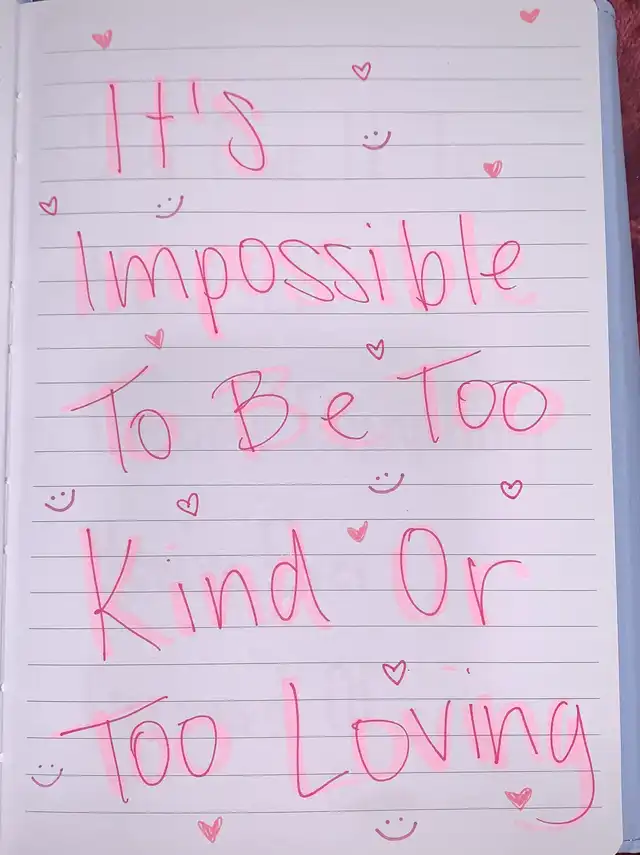 It's
Impossible
To Be Too
Kind Or
Too Loving